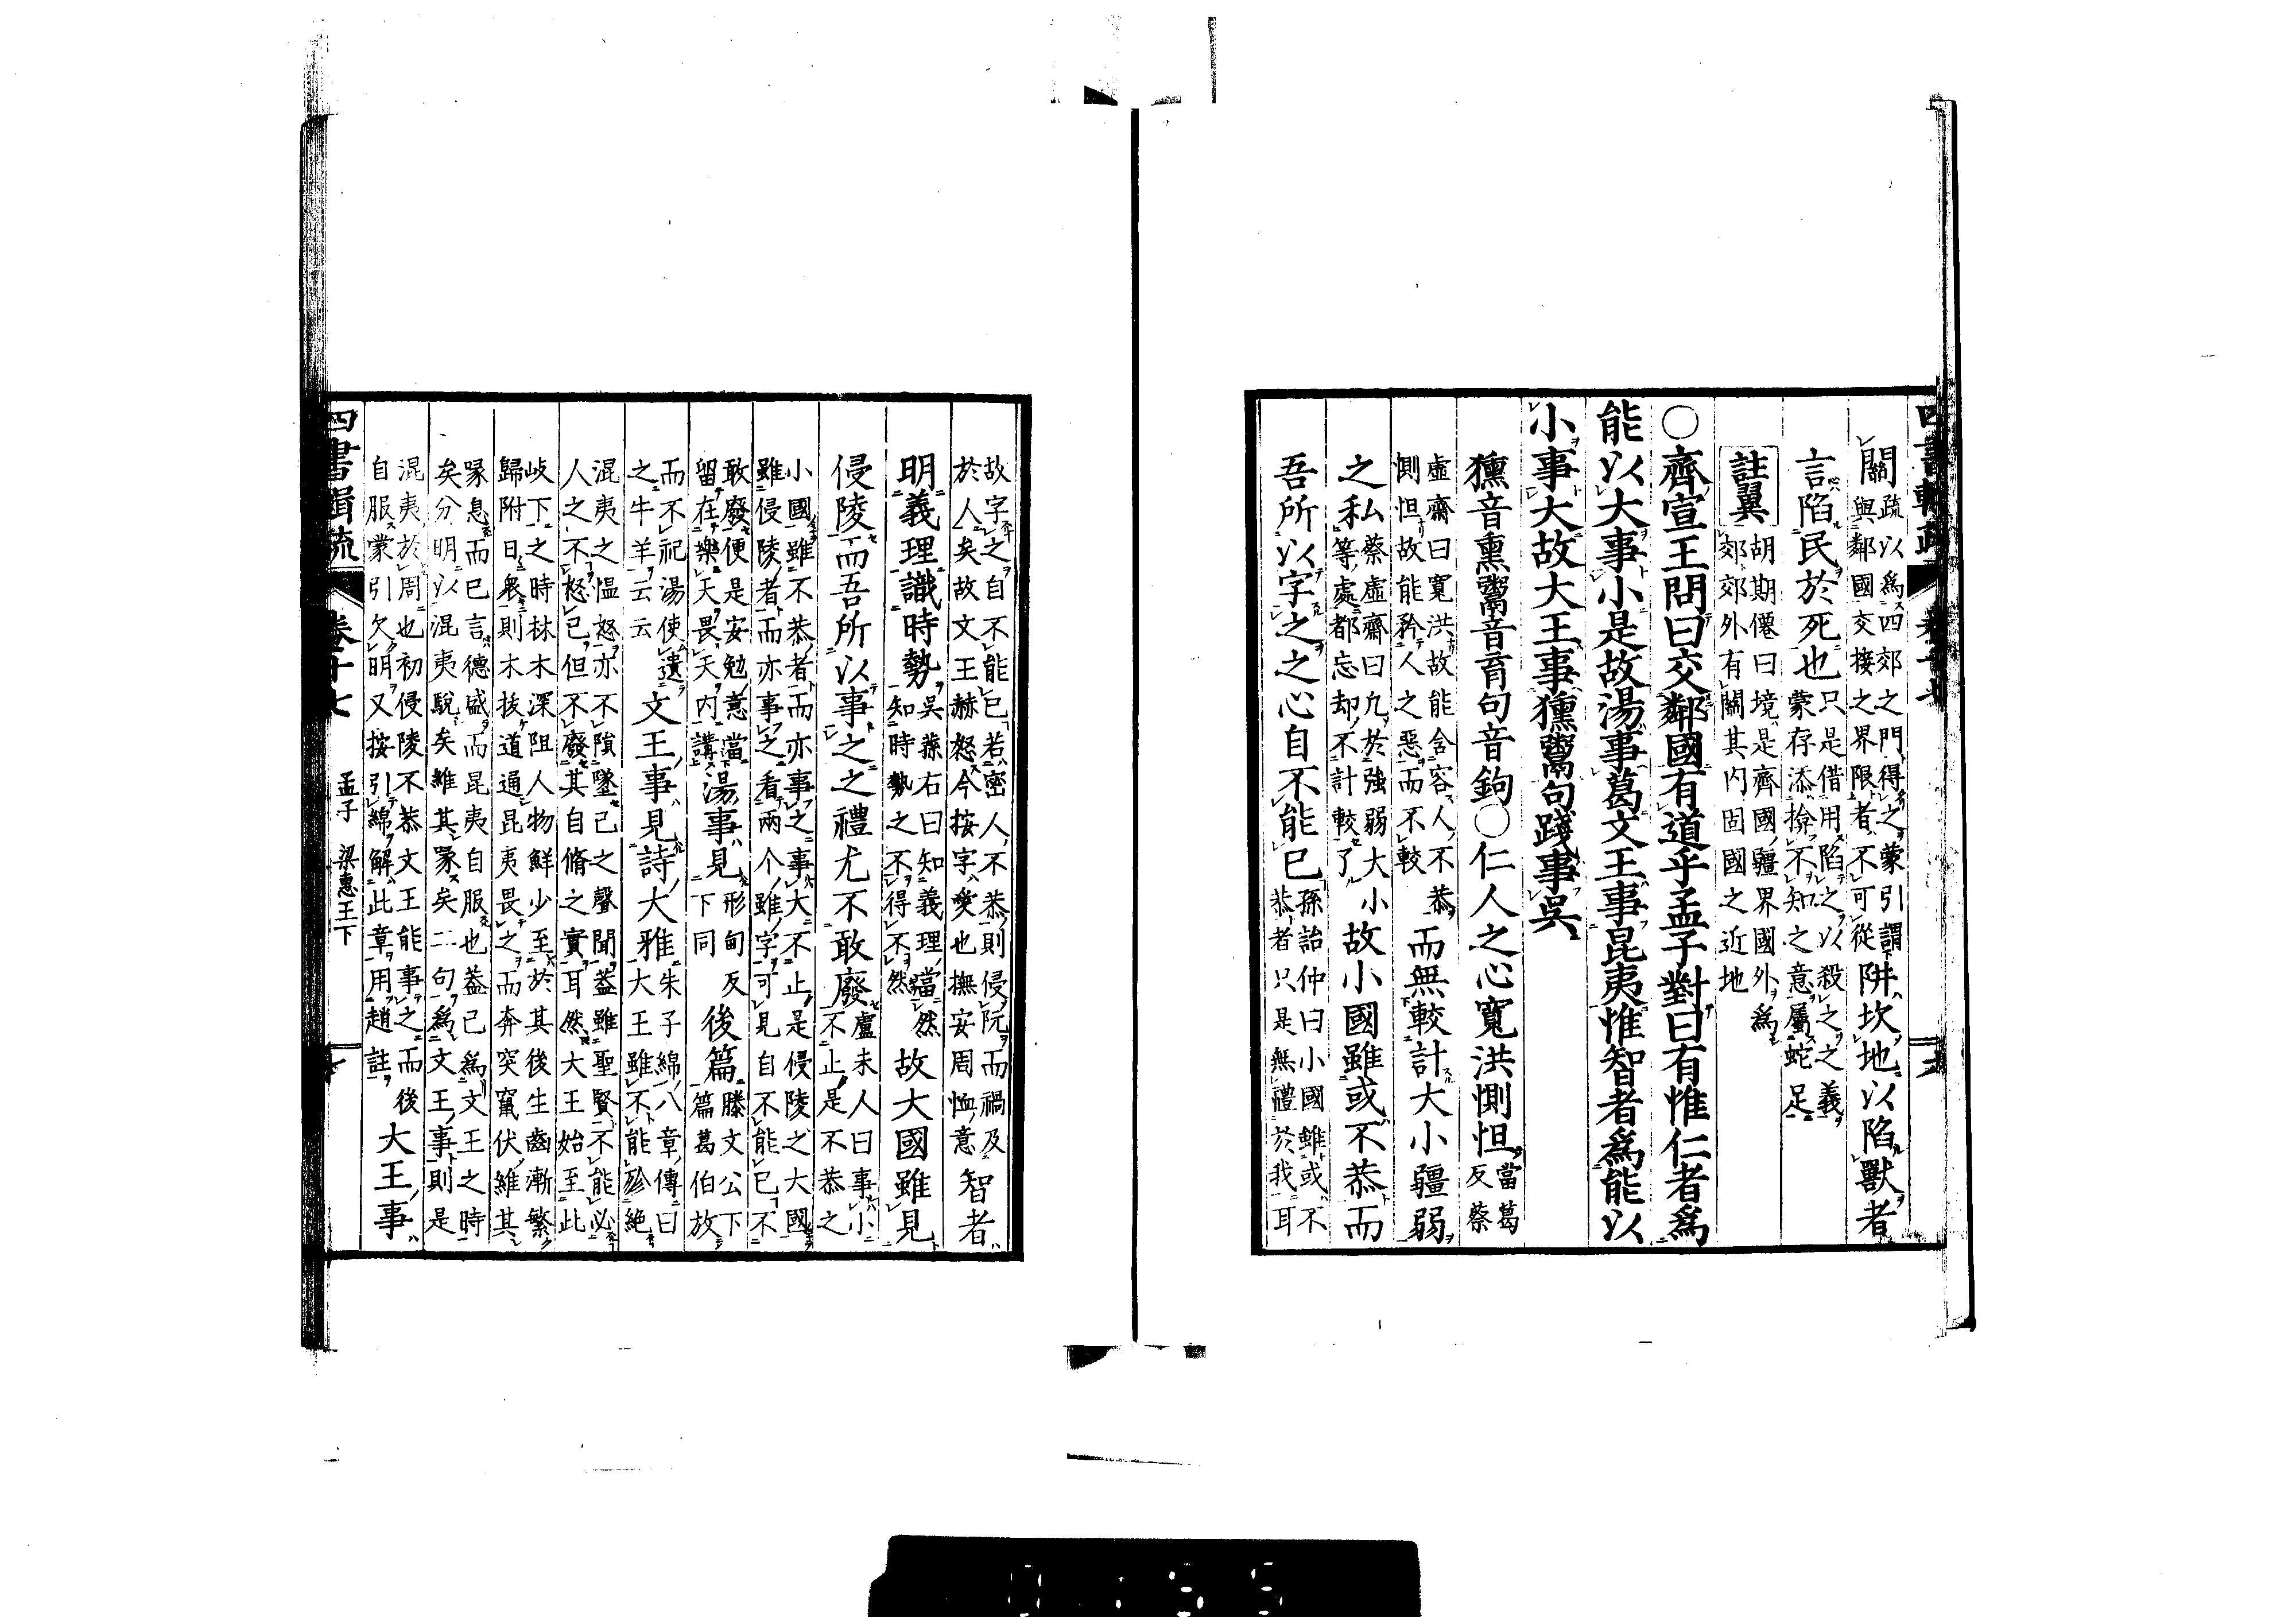 關 疏以爲四郊之門得之蒙引謂
與鄰國交接之界限者不可從 阱坎地以陷獸者
言陷民於死也 只是借用陷之以殺之之義
蒙存添捨不知之意屬蛇足
註翼 胡期僊曰境是齊國疆界國外爲
郊郊外有關其内固國之近地
○齊宣王問曰交鄰國有道乎孟子對曰有惟仁者爲
能以大事小是故湯事葛文王事昆夷惟智者爲能以
小事大故大王事獯鬻句踐事吳
獯音熏鬻音育句音鉤○仁人之心寬洪惻怛 當葛
反蔡
虛齋曰寬洪故能含容人不
惻怛故能矜人之惡而不較 恭 而無較計大小彊弱
之私 蔡虛齋曰凡於強弱大小
等處都忘却不計較了 故小國雖或不恭而
吾所以字之之心自不能已 孫詒仲曰小國雖或不
恭者只是無禮於我耳
故字之自不能已若密人不恭則侵阮而禍及
於人矣故文王赫怒今按字愛也撫安周恤意 智者
明義理識時勢 吳蓀右曰知義理當然
知時勢之不得不然 故大國雖見
侵陵而吾所以事之之禮尤不敢廢 盧未人曰事小
不止是不恭之
小國雖不恭者而亦事之事大不止是侵陵之大國
雖侵陵者而亦事之看兩个雖字可見自不能已不
敢廢便是安勉意當
留在樂天畏天内講 湯事見 形甸反
下同 後篇 滕文公下
篇葛伯放
而不祀湯使遺
之牛羊云云 文王事見詩大雅 朱子綿八章傳曰
大王雖不能殄絶
混夷之慍怒亦不隕墜己之聲聞蓋雖聖賢不能必
人之不怒己但不廢其自脩之實耳然大王始至此
岐下之時林木深阻人物鮮少至於其後生齒漸繁
歸附日衆則木拔道通昆夷畏之而奔突竄伏維其
喙息而已言德盛而昆夷自服也蓋已爲文王之時
矣分明以混夷駾矣維其喙矣二句爲文王事則是
混夷於周也初侵陵不恭文王能事之而後
自服蒙引欠明又按引綿解此章用趙註 大王事
四書輯疏 卷十七 孟子 梁惠王下